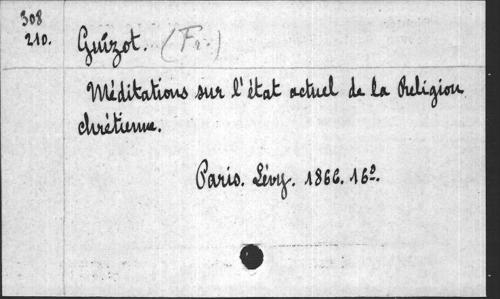 308
210.
Guizot. (Fr.)
Méditations sur l'état actuel de la Religion
chrétienne.
Paris. Lévy. 1866. 16º.